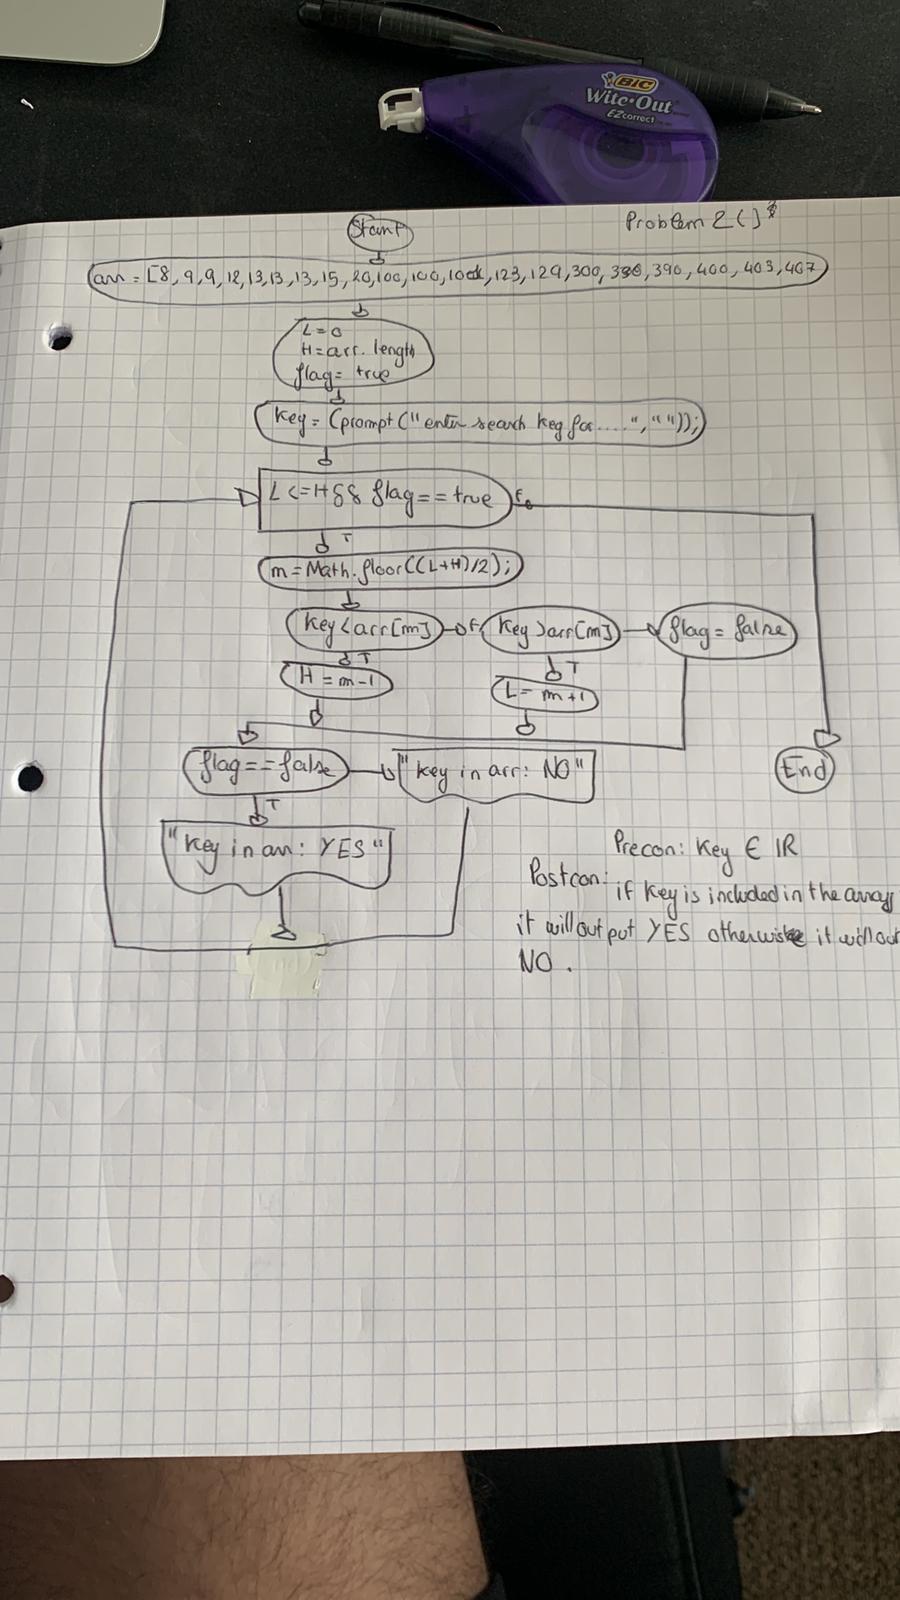 BIC
Wite·Out
EZcorrect
Problem 2()
Start
arr = [8, 9, 9, 12, 13, 13, 13, 15, 20, 100, 100, 123, 129, 300, 390, 400, 403, 407
L = 0
H = arr. length
flag = true
Key = (prompt("enter search key for....", " "));
L <= H && flag == true
F
T
m = Math.floor((L+H)/2);
Key < arr[m]
F
Key > arr[m]
flag = false
T
T
H = m-1
L = m+1
flag == false
"Key in arr: NO"
End
T
"Key in arr: YES"
Precon: Key ∈ IR
Postcon: if Key is included in the array
it will output YES otherwise it will out
NO.